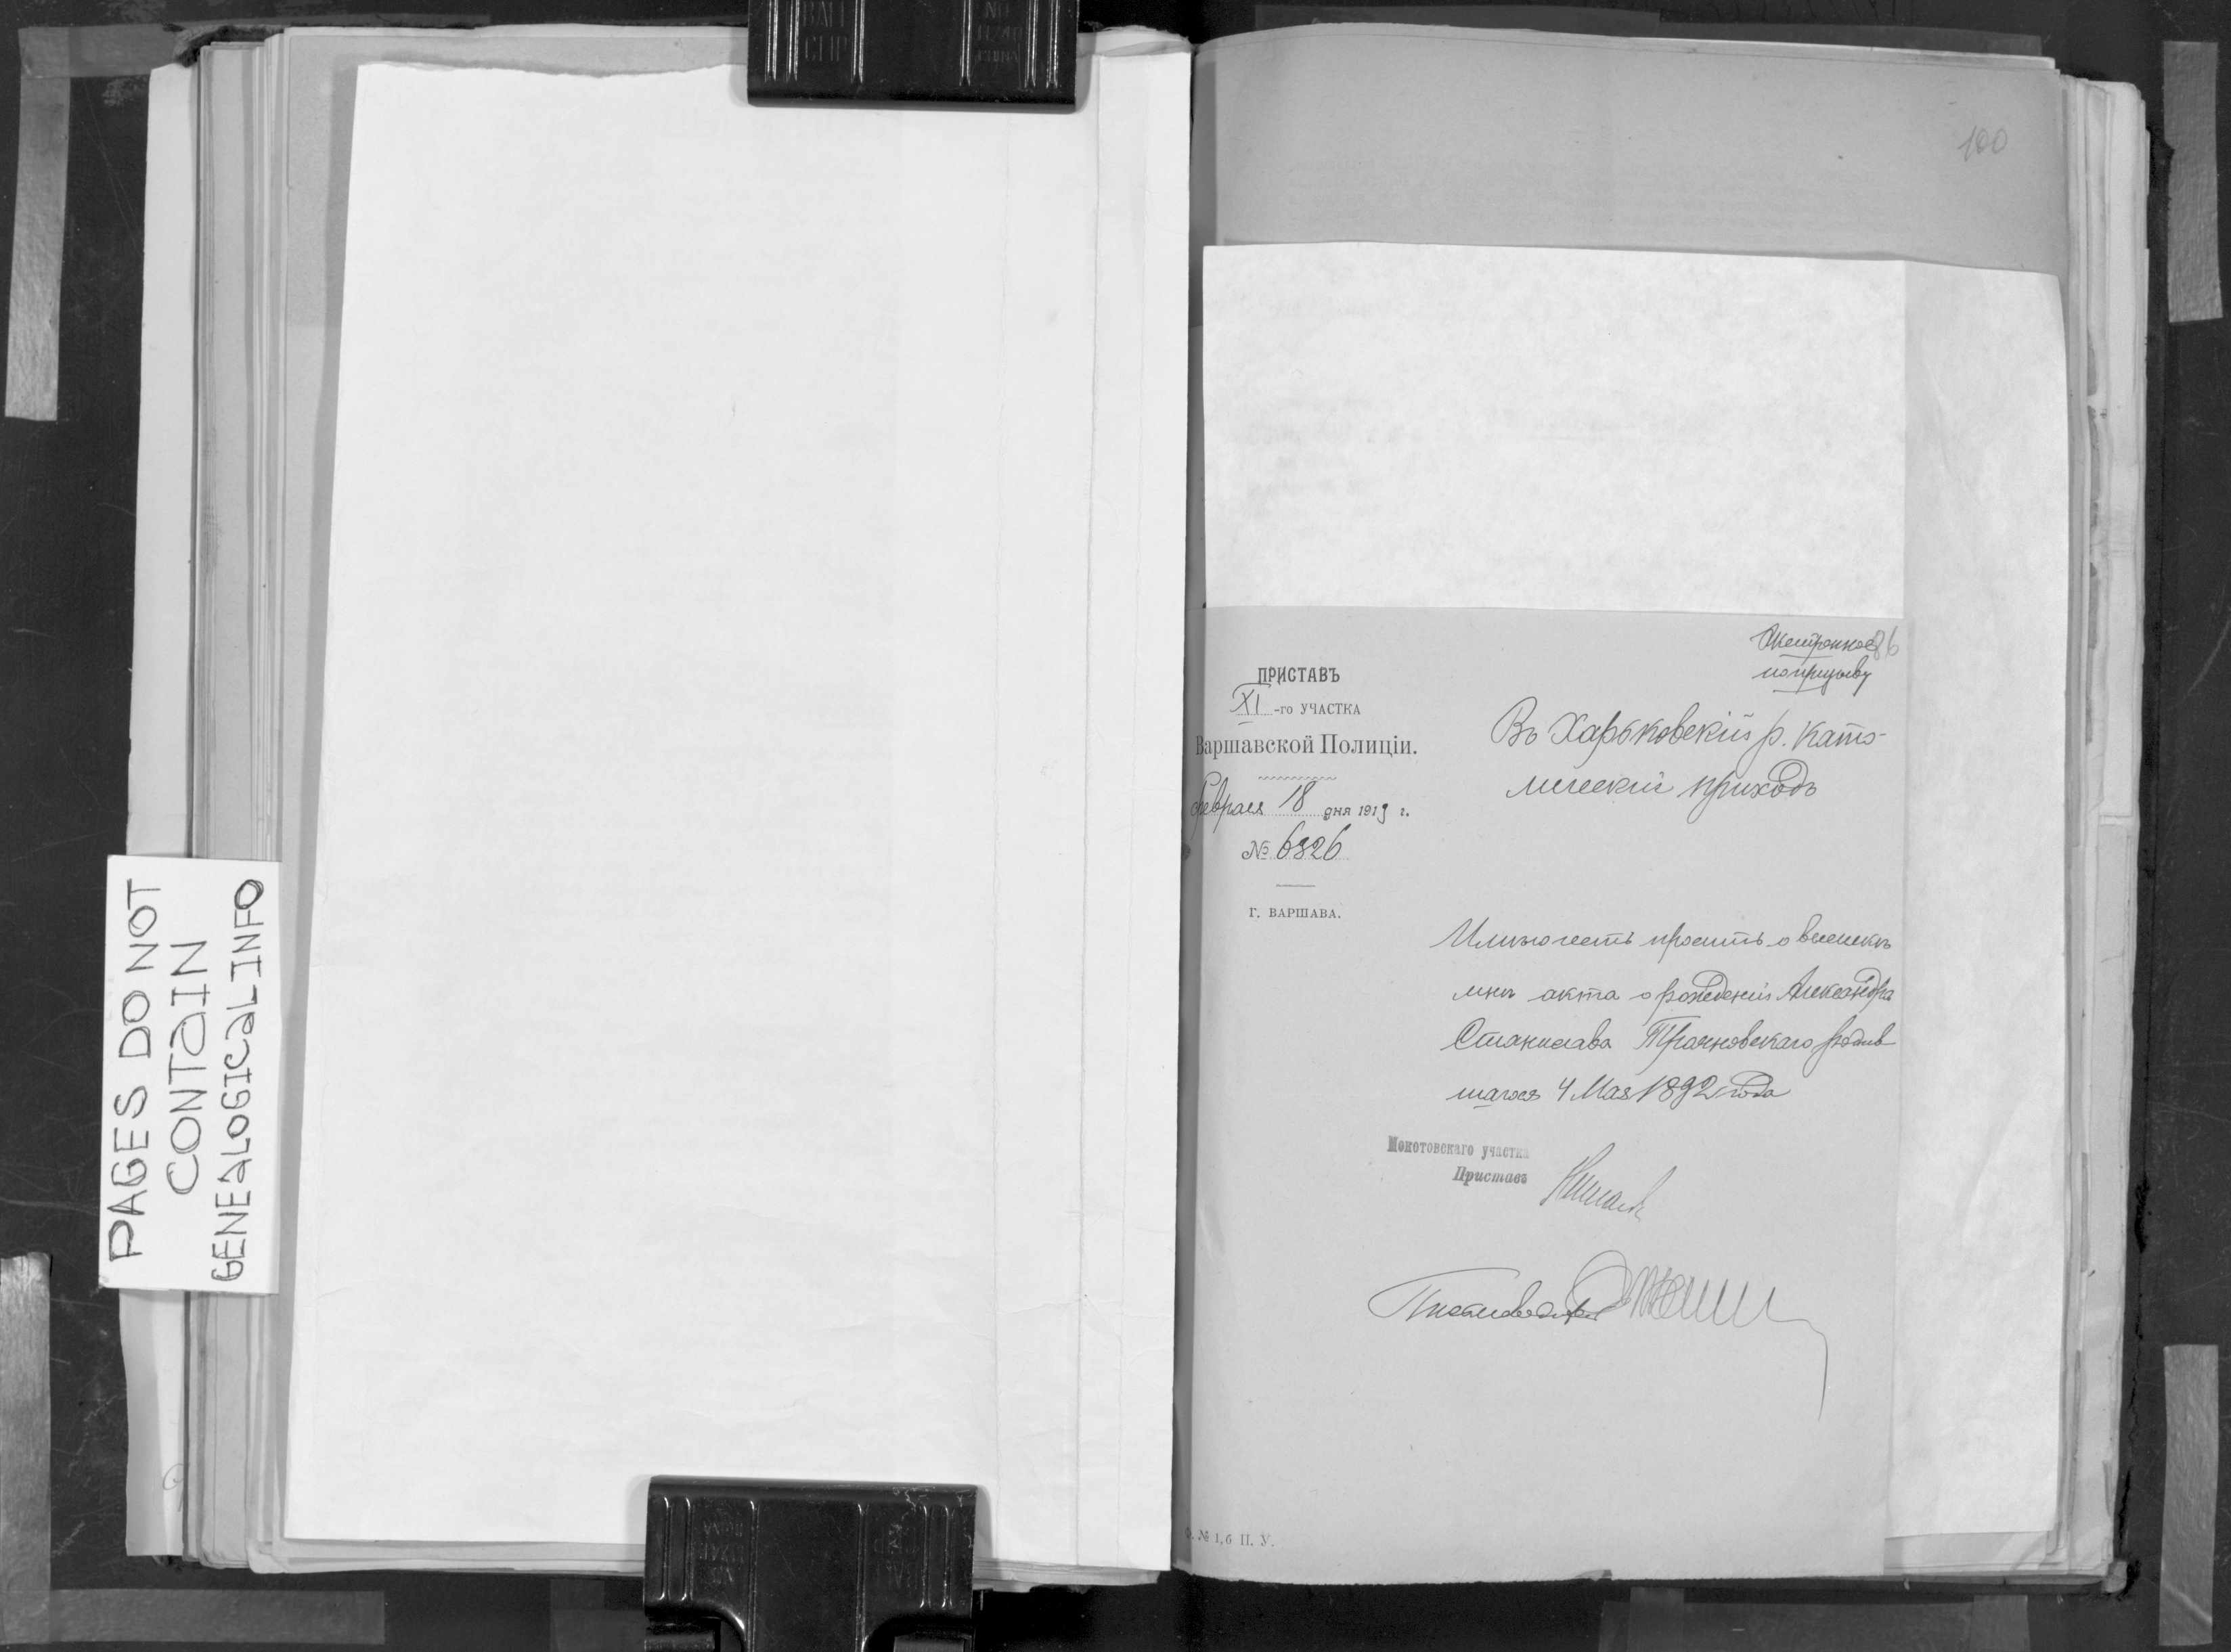 PAGES DO NOT
CONTAIN
GENEALOGICAL INFO
100
86
Экстренное
по призыву
ПРИСТАВЪ
XI -го УЧАСТКА
Варшавской Полиціи.
Февраля 18 дня 1913 г.
№ 6826
Г. ВАРШАВА.
Въ Харьковскій р. Като-
лическій приходъ
Имѣю честь просить о высылкѣ
мнѣ акта о рожденіи Александра
Станислава Трояновскаго родив-
шагося 4 Мая 1892 года
Мокотовскаго участка
Приставъ
Письмоводитель
№ 1,б П. У.